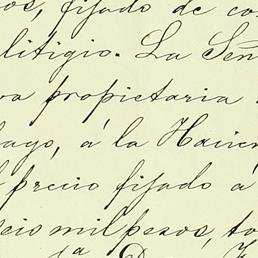 os, fijado de co
litigio. La Señ
va propietaria
ago, á la Hacien
l precio fijado á
seis mil pesos, to